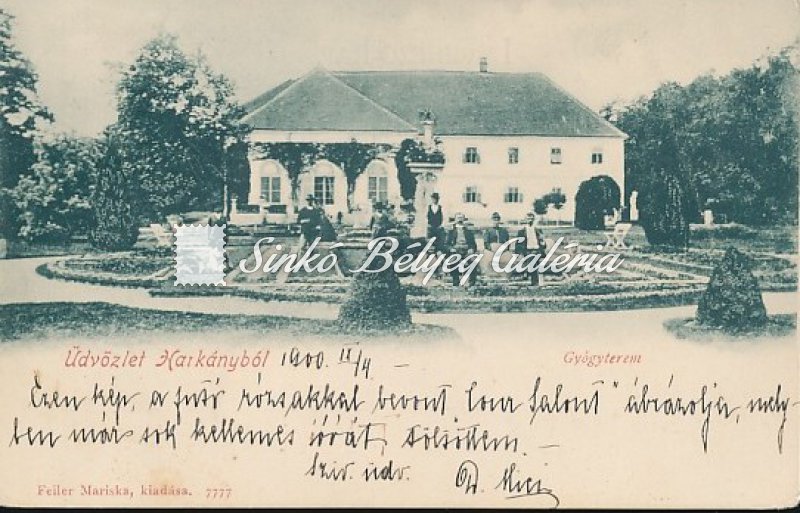 Sinkó Bélyeg Galéria
Üdvözlet Harkányból 1900. II/4 —
Gyógyterem
Ezen kép, a futó rózsakkal bevont "Cour Salont" ábrázolja, mely-
ben már sok kellemes órát töltöttem. —
Sziv. üdv. Mici
Feiler Mariska, kiadása. 7777